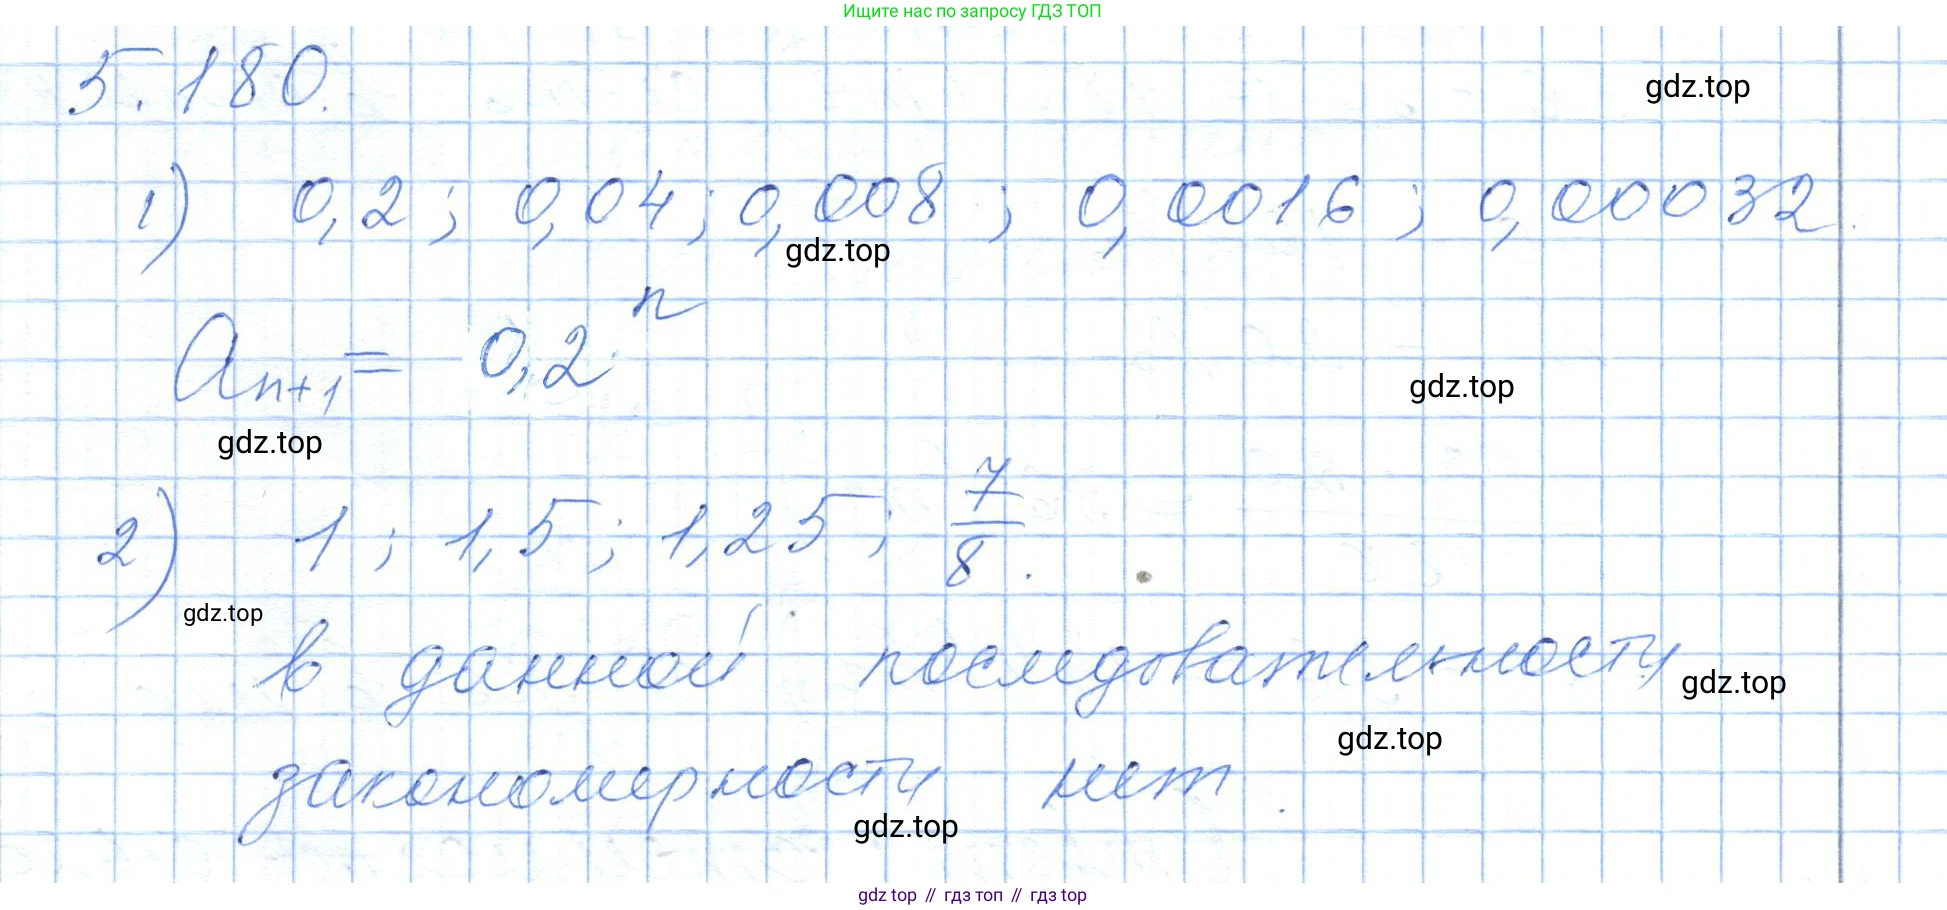 Ищите нас по запросу ГДЗ ТОП
5.180.
gdz.top
1) 0,2; 0,04; 0,008; 0,0016; 0,00032.
gdz.top
a_{n+1} = 0,2^n
gdz.top
gdz.top
2) 1; 1,5; 1,25; 7/8.
gdz.top
в данной последовательности
gdz.top
gdz.top
закономерности нет.
gdz.top
gdz top // гдз топ // гдз top